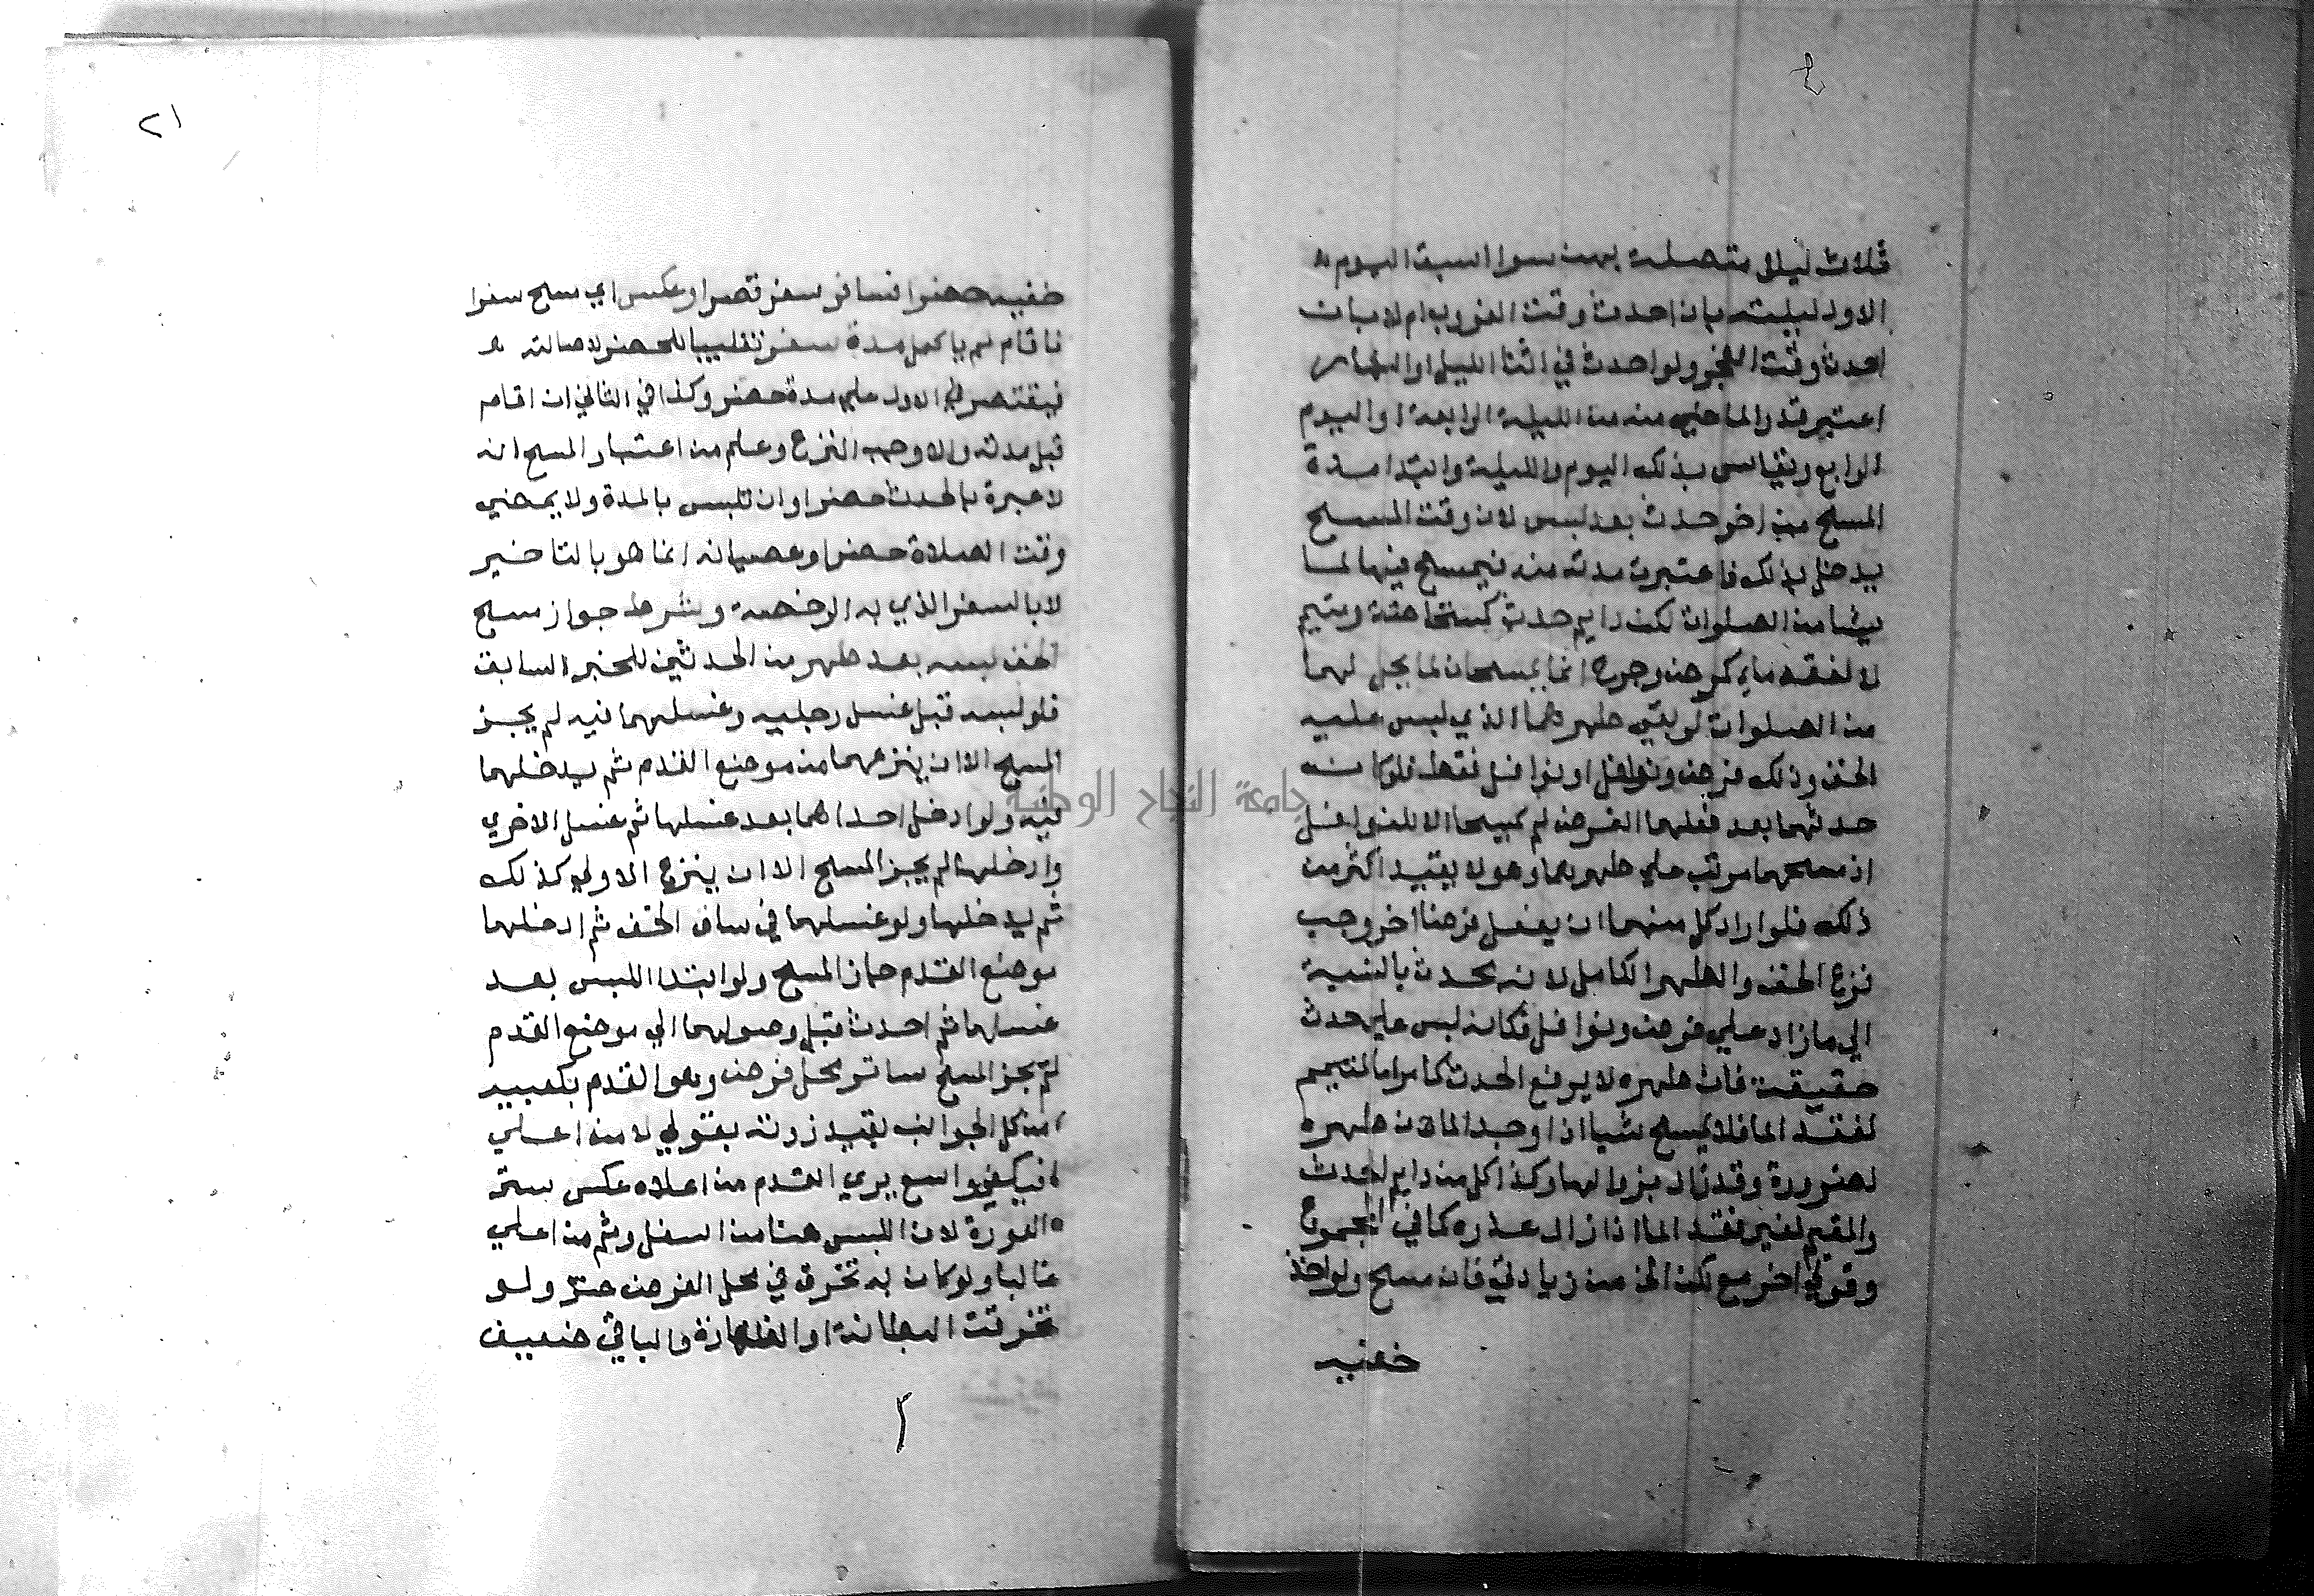 ٤
ثلاث ليال متصلة بهن سوا اسبق اليوم
الاول ليلته بان احدث وقت الغروب ام لا بان
احدث وقت الفجر ولو احدث في اثنا الليل او النهار
اعتبر قدر الماضي منه من الليلة الرابعة او اليوم
الرابع ويقاس بذلك اليوم والليلة وابتدا مدة
المسح من اخر حدث بعد لبس لان وقت المسح
يدخل بذلك فاعتبرت مدته منه فيمسح فيها لما
يشا من الصلوات لكن دايم حدث كمستحاضة ومتيم
لا لفقد ما كمرض وجرح انما يمسحان لما يحل لهما
من الصلوات لو بقي طهرهما الذي لبس عليه
الخف وذلك فرض ونوافل او نوافل فقط فلو كان
حدثهما بعد فعلهما الفرض لم يمسحا الا للنوافل
اذ مسحهما مرتب علي طهرهما وهو لا يفيد اكثر من
ذلك فلو اراد كل منهما ان يفعل فرضا اخر وجب
نزع الخف والطهر الكامل لانه محدث بالنسبة
الي ما زاد علي فرض ونوافل فكانه لبس علي حدث
حقيقة فان طهره لا يرفع الحدث كما مر اما المتيمم
لفقد الما فلا يمسح شيا اذا وجد الما لان طهره
لضرورة وقد زال بزوالها وكذا كل من دايم الحدث
والمتيم لغير فقد الما اذا زال عذره كما في المجموع
وقولي اخر مع لكن الخ من زيادتي فان مسح ولو احد
خفيه
٢١
خفيه حضرا فسافر سفر قصر او عكس اي مسح سفرا
فاقام لم يكمل مدة سفر تغليبا للحضر لاصالته
فيقتصر في الاول علي مدة حضر وكذا في الثاني ان اقام
قبل مدته والا وجب النزع وعلم من اعتبار المسح انه
لا عبرة بالحدث حضرا وان تلبس بالمدة ولا يمضي
وقت الصلاة حضرا وعصيانه انما هو بالتاخير
لا بالسفر الذي به الرخصة وشرط جواز مسح
الخف لبسه بعد طهر من الحدثين للخبر السابق
فلو لبسه قبل غسل رجليه وغسلهما فيه لم يجز
المسح الا ان ينزعهما من موضع القدم ثم يدخلهما
فيه ولو ادخل احداهما بعد غسلها ثم غسل الاخري
وادخلها لم يجز المسح الا ان ينزع الاولي كذلك
ثم يدخلها ولو غسلهما في ساق الخف ثم ادخلهما
موضع القدم جاز المسح ولو ابتدا اللبس بعد
غسلهما ثم احدث قبل وصولهما الي موضع القدم
لم يجز المسح ساتر محل فرض وهو القدم بكعبيه
من كل الجوانب بقيد زدته بقولي لا من اعلي
فيكفي واسع يري القدم من اعلاه عكس ستر
العورة لان اللبس هنا من اسفل وثم من اعلي
غالبا ولو كان به تخرق في محل الفرض ضر ولو
تخرقت البطانة او الظهارة والباقي ضعيف
جامعة النجاح الوطنية